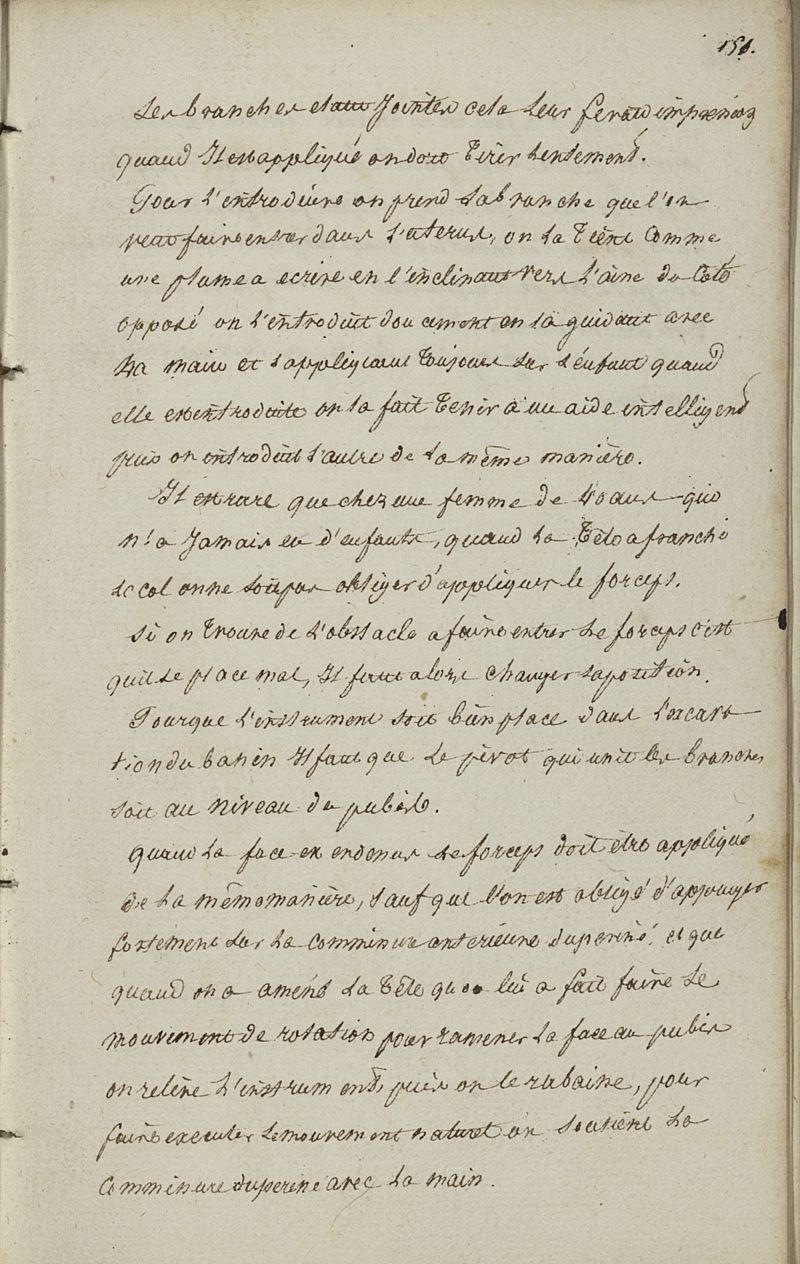 151.
Les branches etant Jointes cela leur feroit impression
quand Il est appliqué on doit tirer lentement.
Pour l'introduire on prend la branche que l'on
veut faire entrer dans l'uterus, on la tient Comme
une plume a ecrire en l'inclinant vers l'aine du Coté
opposé on l'introduit doucement en la guidant avec
La main et l'appliquant toujours sur l'enfant quand
elle est introduite on la fait tenir a un aide intelligend
puis on introduit l'autre de la même manière.
Il est rare que chez une femme de 40 ans qui
n'a Jamais eu d'enfants, quand la tête a franchi
le col on ne soit pas obliger d'appliquer le forceps.
si on trouve de l'obstacle a faire entrer le forceps c'est
quil se place mal, Il faut alors changer sa position.
Pourque l'instrument soit bien place dans l'excava
tion du basin Il faut que le pivot qui unit les branches
soit au niveau du pubis.
quand la face est en desus le forceps doit être appliqué
de la même manière, sauf que l'on est obligé d'appuyer
fortement sur la comminure anterieure du periné, et que
quand on a amené la tête qu'on lui a fait faire le
mouvement de rotation pour ramener la face au pubis
on releve l'instrument, puis on le rabaisse, pour
faire executer le mouvement naturel on soutient la
Comminure du periné avec la main.